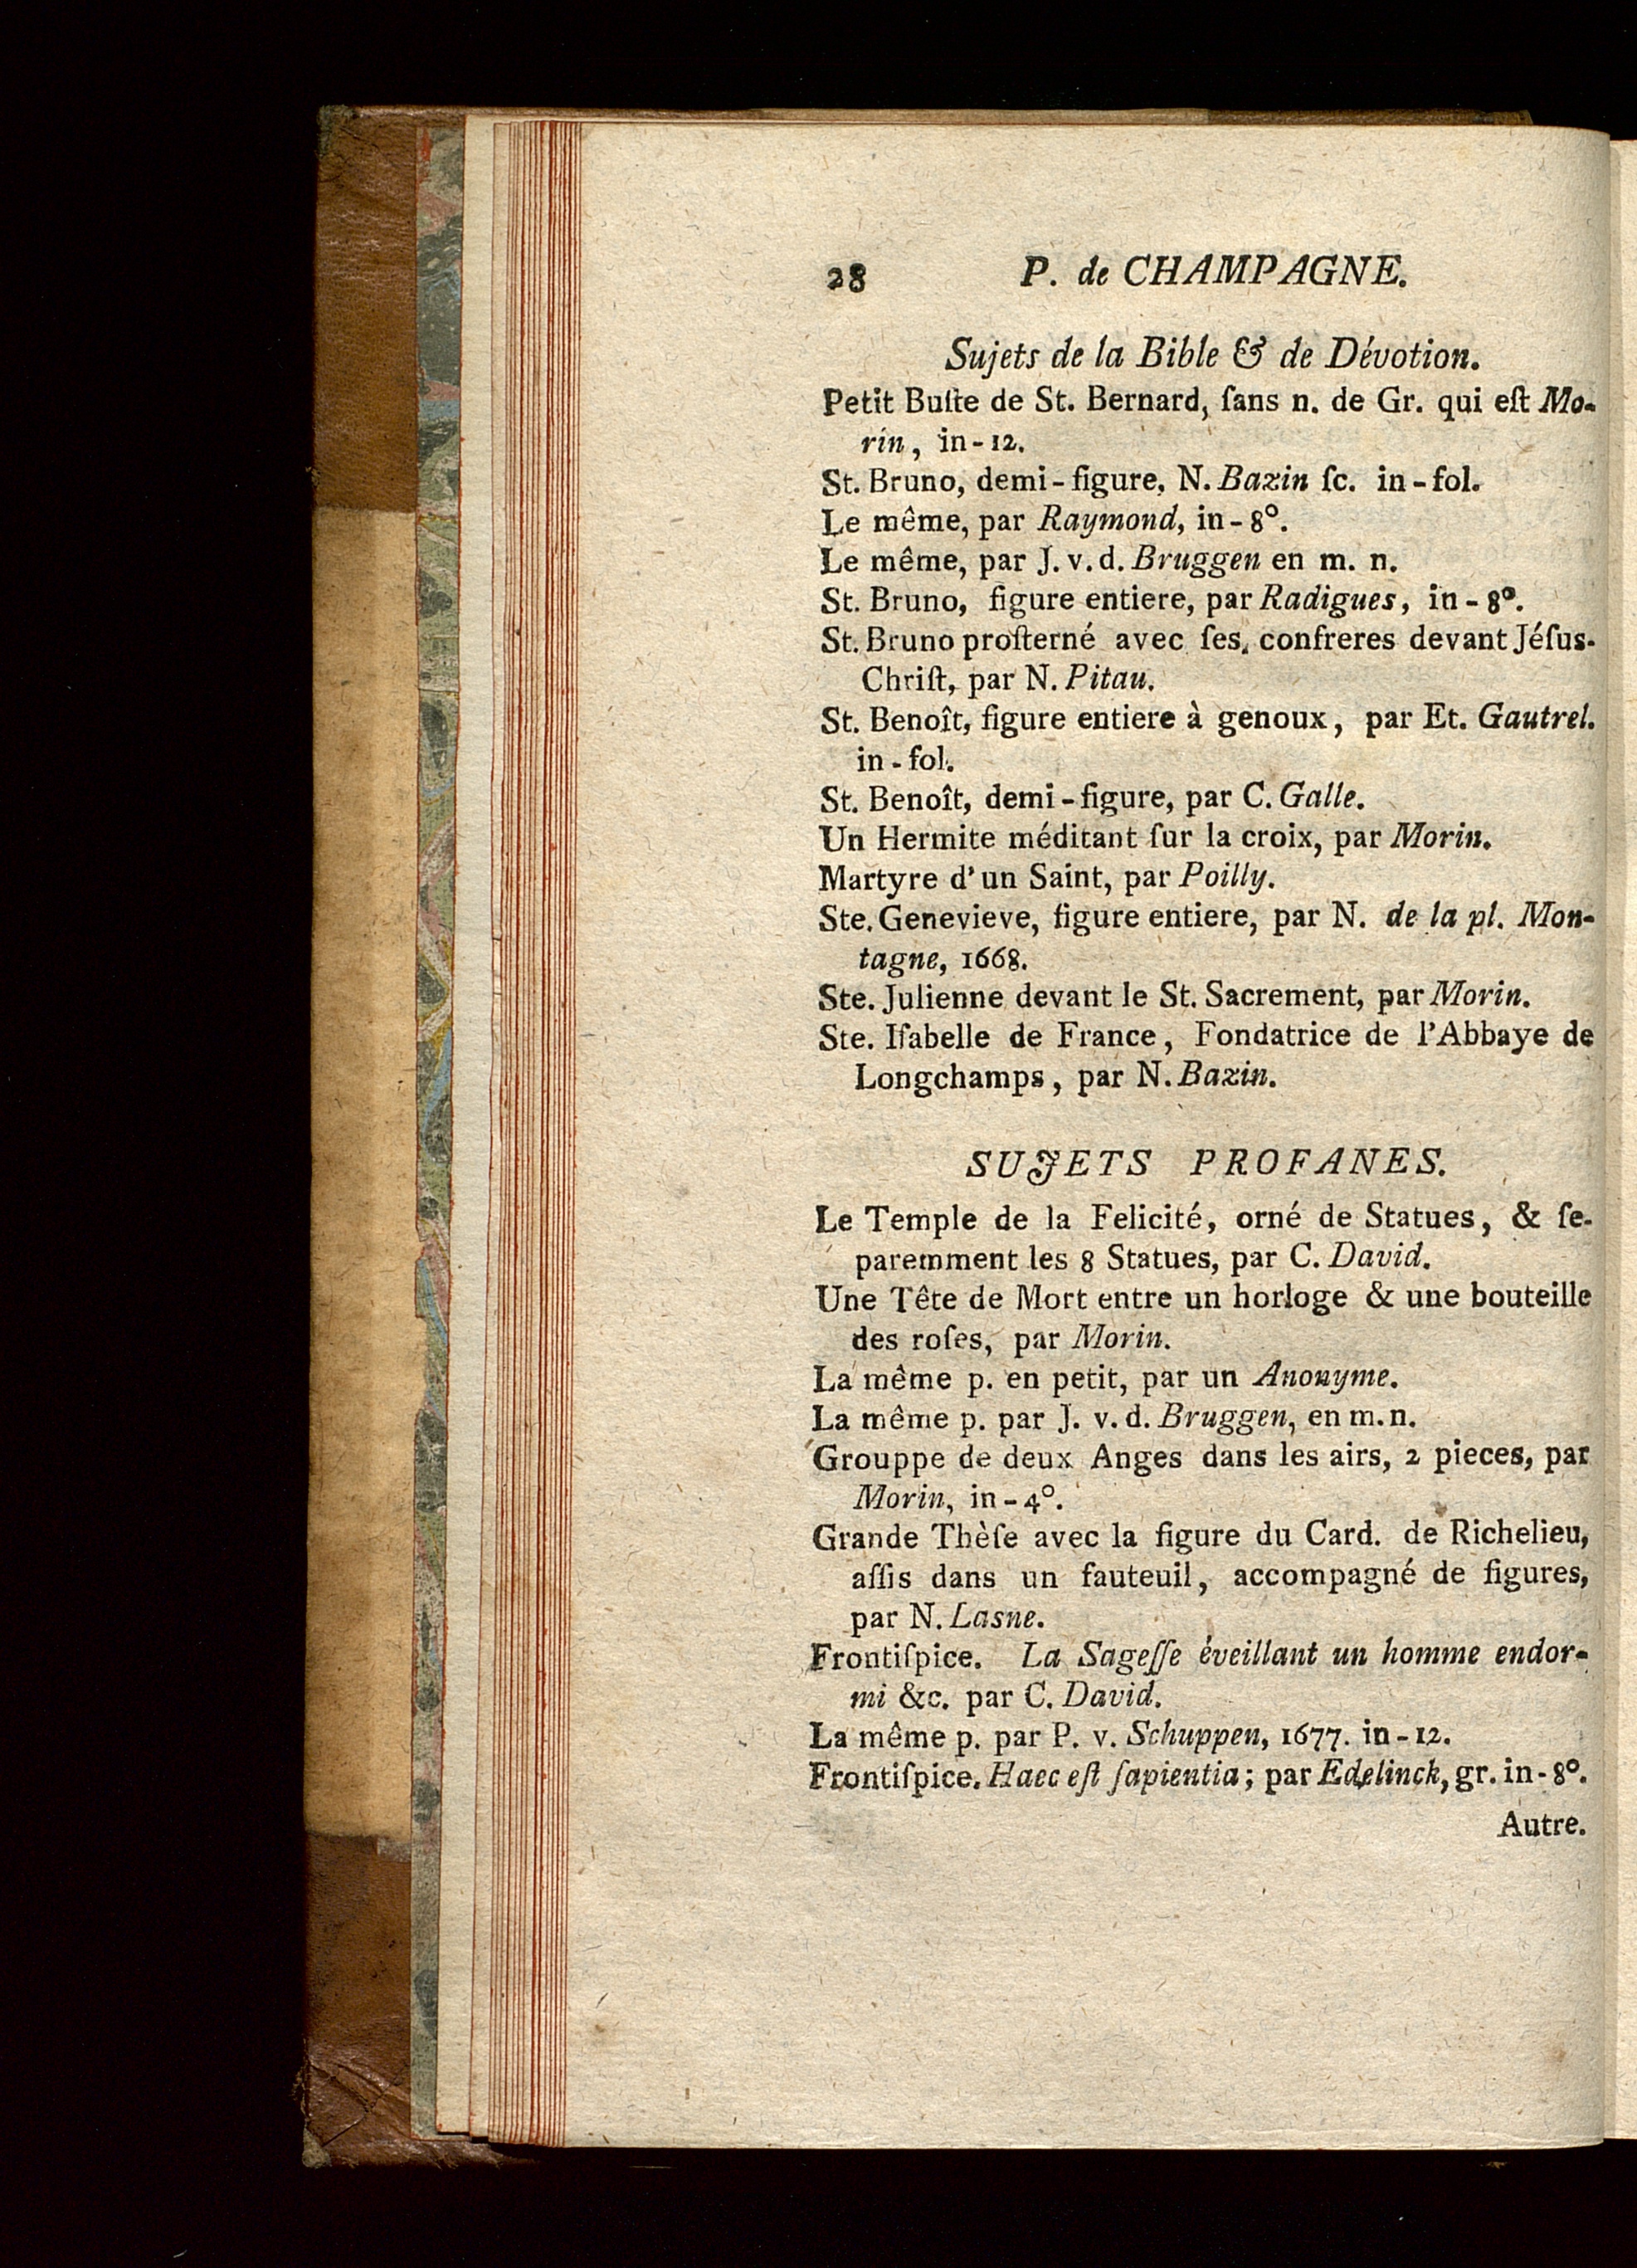 28 P. de CHAMPAGNE.
Sujets de la Bible & de Dévotion.
Petit Buſte de St. Bernard, ſans n. de Gr. qui eſt Mo-
rin, in-12.
St. Bruno, demi-figure, N. Bazin ſc. in-fol.
Le même, par Raymond, in-8°.
Le même, par J. v. d. Bruggen en m. n.
St. Bruno, figure entiere, par Radigues, in-8°.
St. Bruno proſterné avec ſes confreres devant Jéſus-
Chriſt, par N. Pitau.
St. Benoît, figure entiere à genoux, par Et. Gautrel.
in-fol.
St. Benoît, demi-figure, par C. Galle.
Un Hermite méditant ſur la croix, par Morin.
Martyre d'un Saint, par Poilly.
Ste. Genevieve, figure entiere, par N. de la pl. Mon-
tagne, 1668.
Ste. Julienne devant le St. Sacrement, par Morin.
Ste. Iſabelle de France, Fondatrice de l'Abbaye de
Longchamps, par N. Bazin.
SUJETS PROFANES.
Le Temple de la Felicité, orné de Statues, & ſe-
paremment les 8 Statues, par C. David.
Une Tête de Mort entre un horloge & une bouteille
des roſes, par Morin.
La même p. en petit, par un Anonyme.
La même p. par J. v. d. Bruggen, en m. n.
Grouppe de deux Anges dans les airs, 2 pieces, par
Morin, in-4°.
Grande Thèſe avec la figure du Card. de Richelieu,
aſſis dans un fauteuil, accompagné de figures,
par N. Lasne.
Frontiſpice. La Sageſſe éveillant un homme endor-
mi &c. par C. David.
La même p. par P. v. Schuppen, 1677. in-12.
Frontiſpice. Haec eſt ſapientia; par Edelinck, gr. in-8°.
Autre.